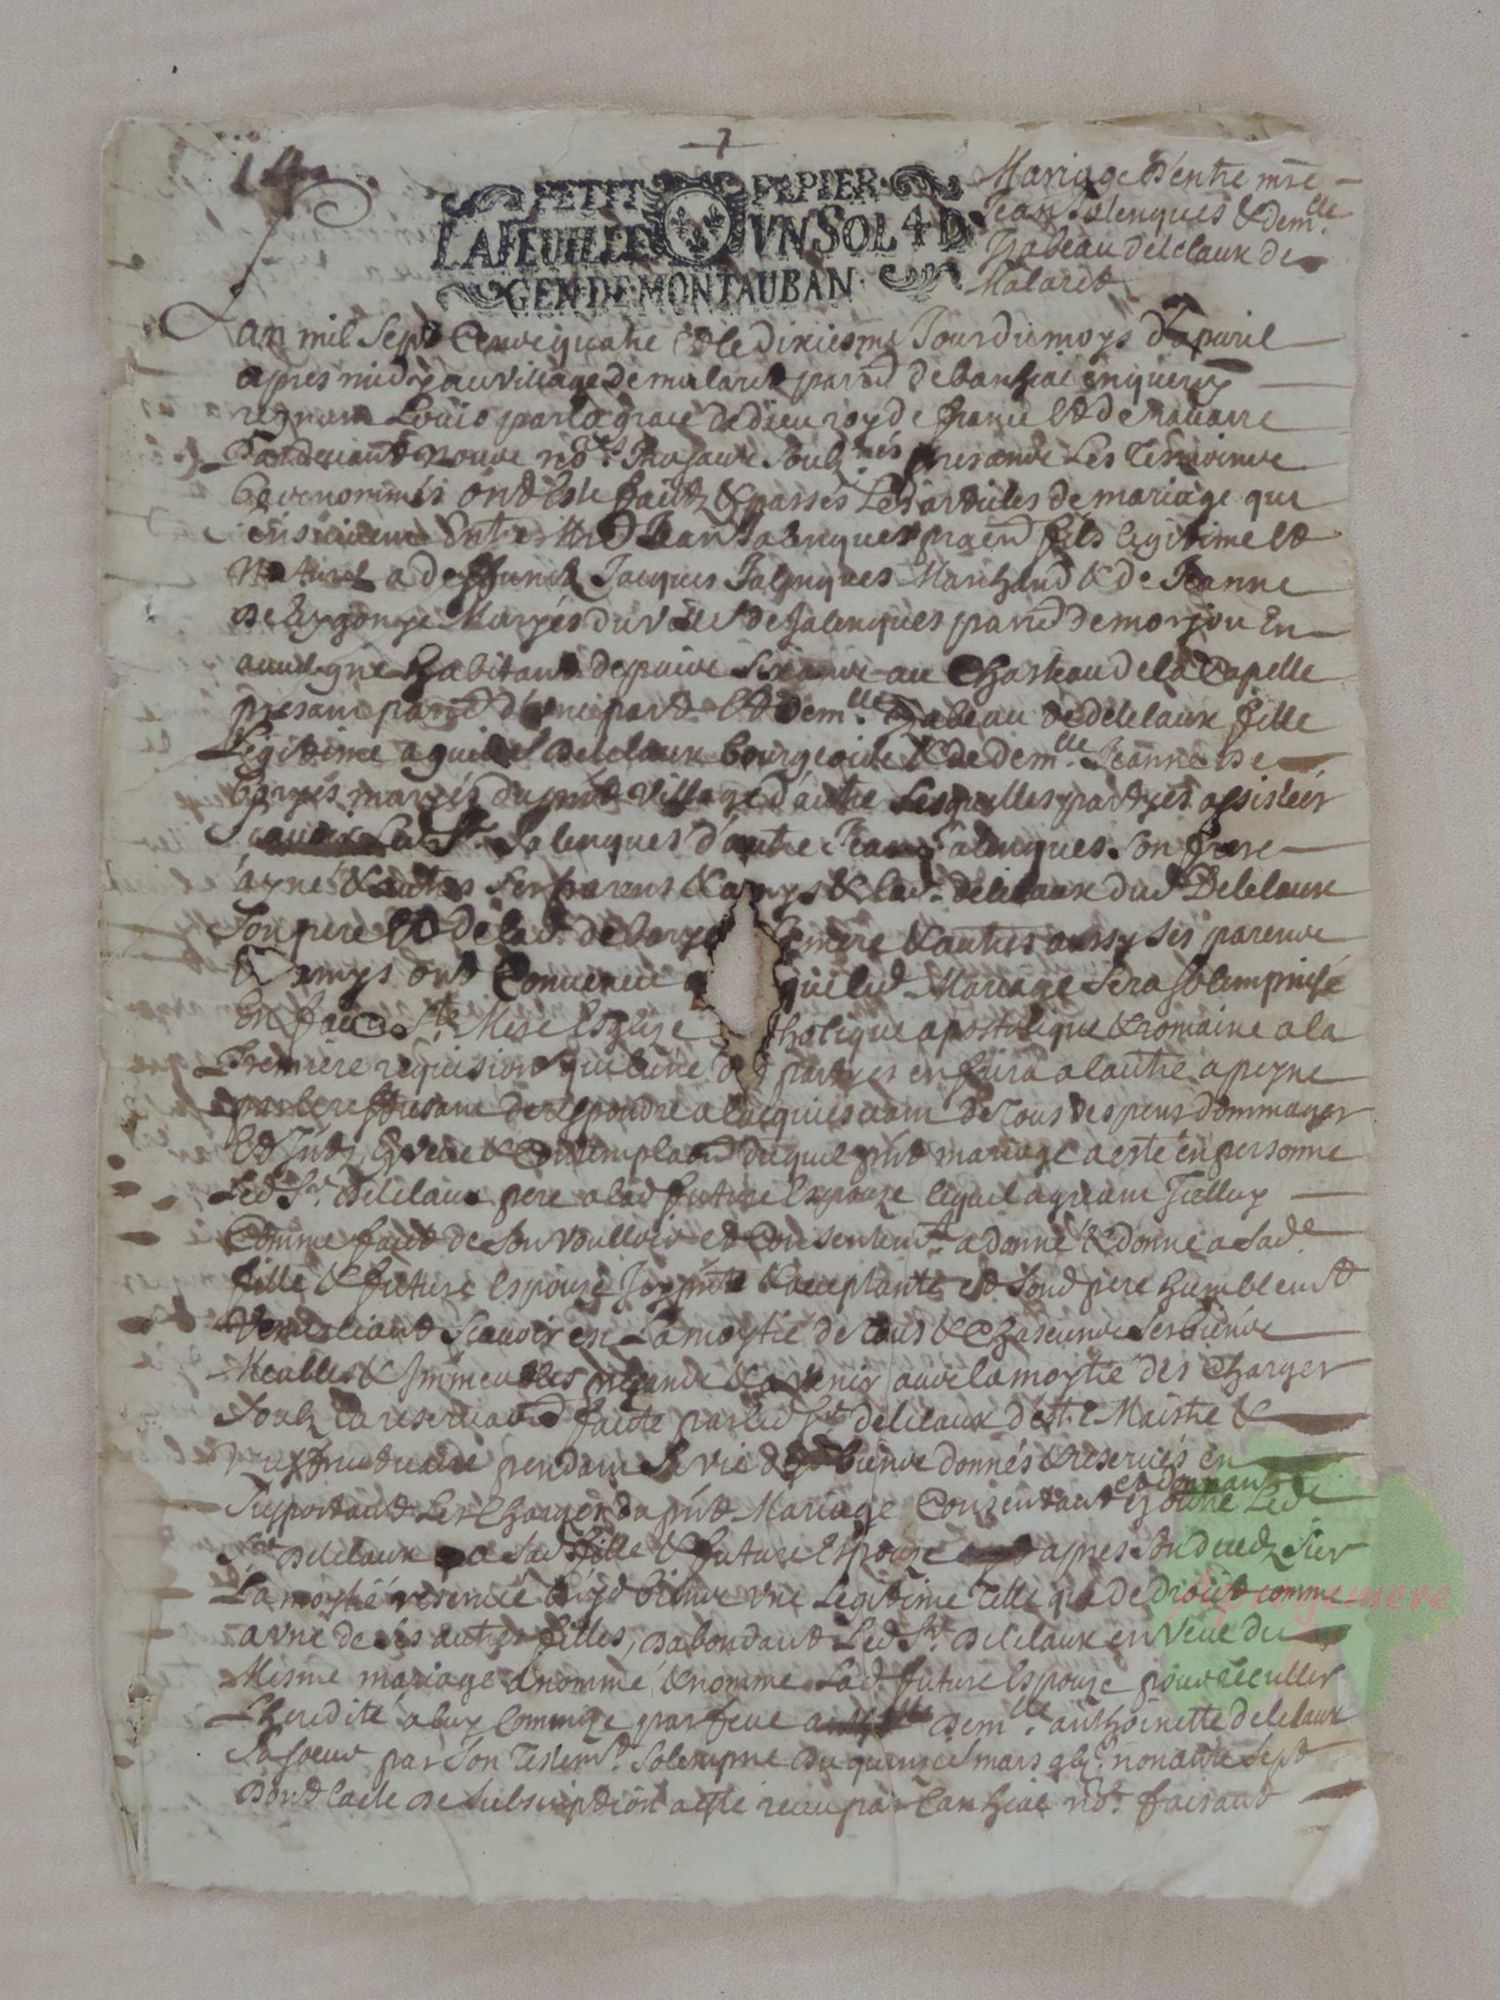 14
7
PETIT PAPIER
LA FEUILLE VN SOL 4 D
GEN DE MONTAUBAN
Mariage d'entre mre
Jean Jalenques & demlle
Izabeau delclaux de
Malaret
Lan mil sept cens quatre et le dixiesme Jour du moys d'apvril
apres midy au village de malaret parrd de banhiac en quercy
regnant Louis par la grace de dieu roy de france et de navarre
Pardevant nous nore Royal soubzné presans Les Tesmoins
bas nommés ont esté faitz & passés Les articles de mariage qui
ensuivent Entre Me Jean Jalenques fils legitime et
naturel a deffunct Jacques Jalenques Marchand & de Jeanne
de Maryés du de Jalenques parrd de monjou En
auvergne habitant depuis six ans au Chasteau de la Capelle
presant parrd d'une part Et demlle Izabeau de delclaux fille
Legitime a delclaux bourgeois & de demlle Jeanne de
maryés du pnt Village d'autre Lesquelles partyes assistées
Led Sr Jalenques d'autre Jean Jalenques son frere
ayné & autres ses parens & amys & lad. delclaux dud Delclaux
Son pere Et de lad. de mere & autres aussy ses parens
& amys ont Convenu que led Mariage Sera Solempnisé
En face Ste Mere Esglize tholique apostolique & romaine a la
Premiere requisition que l'une des partyes en faira a l'autre a peyne
par le reffusant de respondre a l'acquiessant de Tous despens dommages
Et Intz En veue & Contemplaon duquel pnt mariage a esté en personne
Led Sr. Delclaux pere a lad future Espouze lequel agreant Icelluy
Comme fait de Son voulloir et Consentemt a donné & donne a Sade
fille & future Espouze Icy pnte & acceptante et Sond pere humblemt
Remerciant Scavoir est La moytié de tous & Chascuns Ses biens
Meubles & Immeubles presans & avenir avec la moytié des Charges
Soubz la reservaon faite par led Sr delclaux d'estre Maistre &
pendant Sa vie desd biens donnés & reservés en
Supportant Les Charges du pnt Mariage Consentant et donnant Led
Sr Delclaux a Sad fille & future Espouze apres Son decedz Sur
La moytié reservée desd biens vne Legitime Telle que de droit comme
a vne de ses autres filles, D'abondant Led Sr. Delclaux en Veue du
Mesme mariage a nommé & nomme Lad future Espouze pour recullir
L'heredité a luy Commize par feue demlle anthoinette delclaux
Sa Soeur par Son Testemt Solempne du quinze mars nonante Sept
Dont l'acte de Subscription a esté receu par Canhiac nore faisant